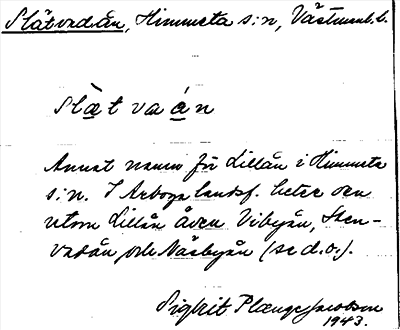 Slätvadån, Himmeta s:n, Västmanl. l.
Slæ̀t va á̱n
Annat namn för Lillån i Himmeta
s:n. I Arboga landsf. heter den
utom Lillån även Vibyån, Sten-
vadån och Näsbyån (se d.o.).
Sigbrit Plænge Jacobson
1943.